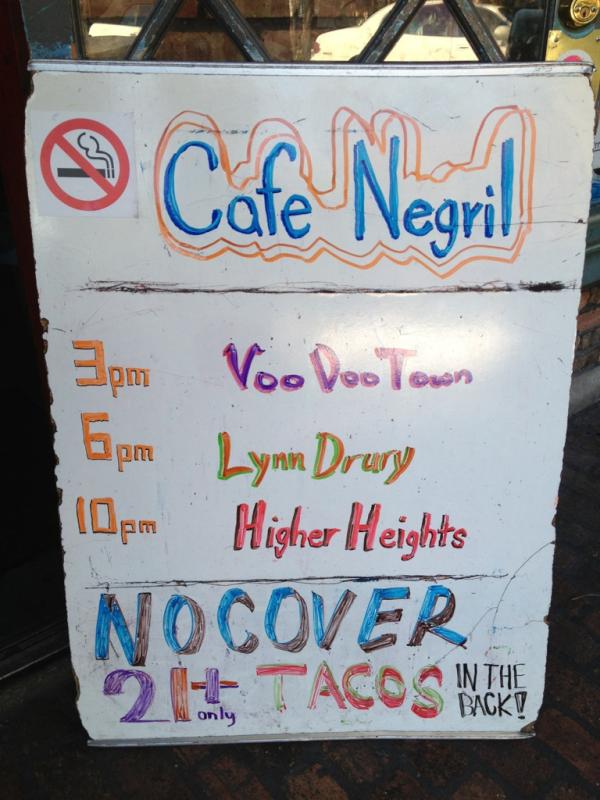 Cafe Negril
3pm Voo Doo Town
6pm Lynn Drury
10pm Higher Heights
NO COVER
21+ only TACOS IN THE BACK!